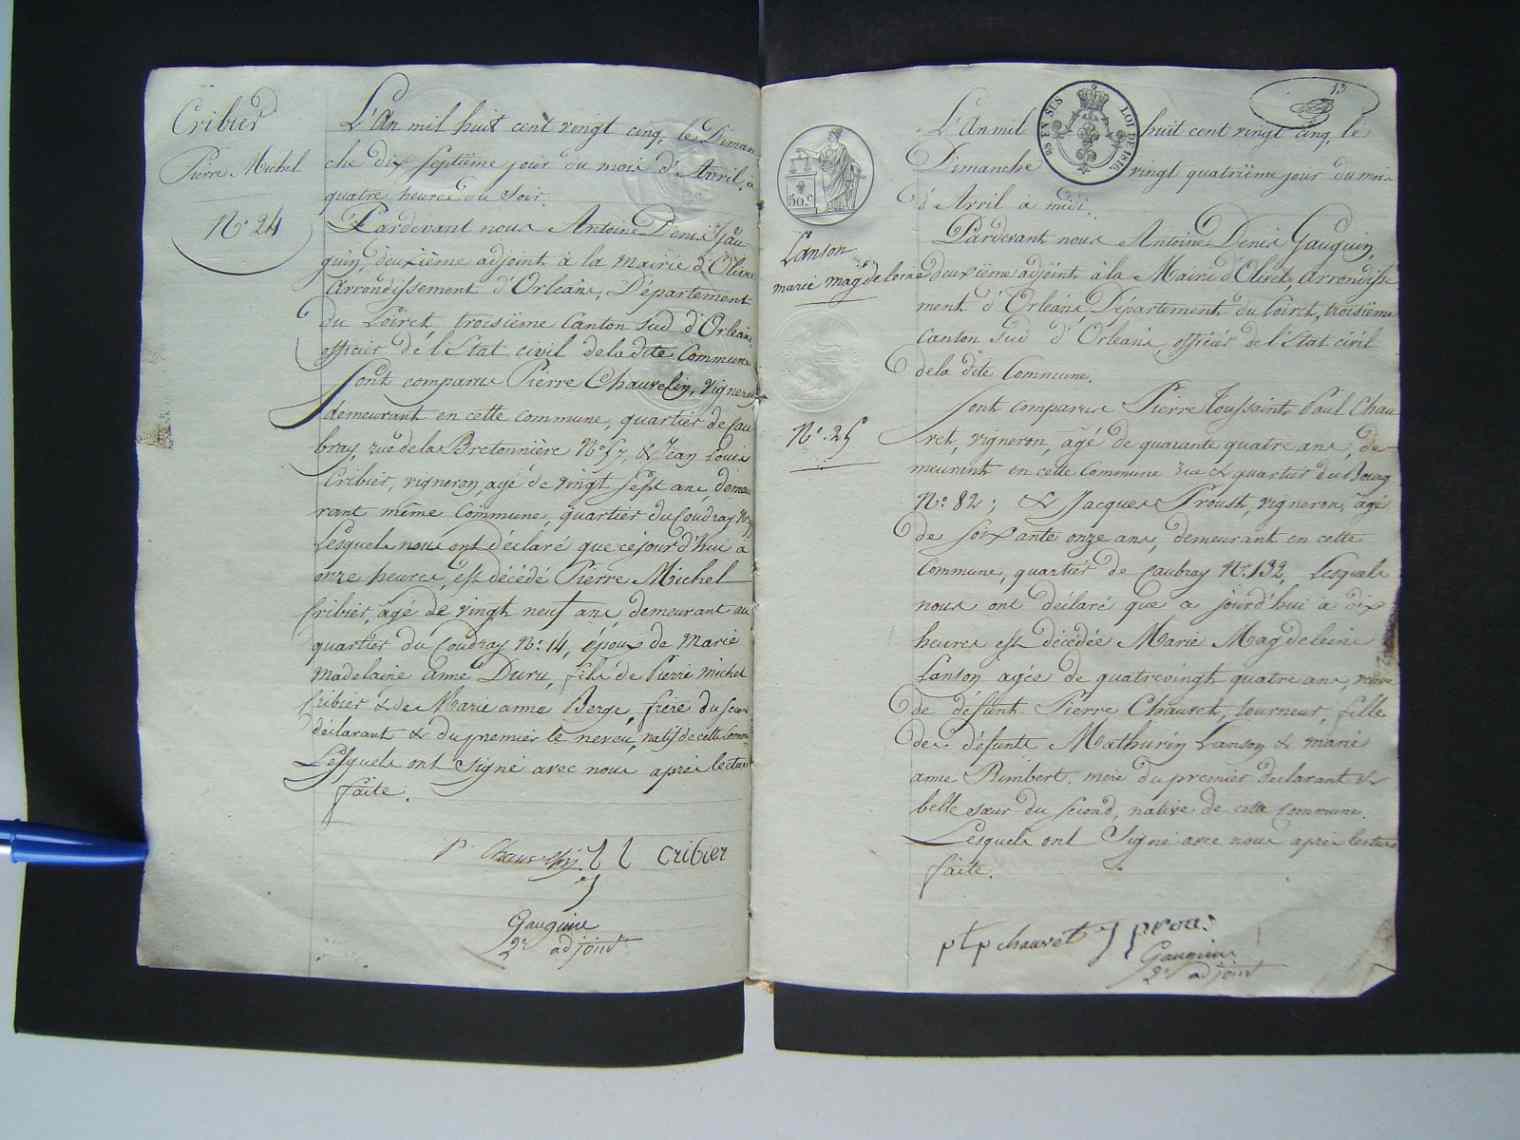 Cribier
Pierre Michel
N° 24
L'An mil huit cent vingt cinq, le Diman
che dix septiême jour du mois d'Avril, à
quatre heures du soir.
Pardevant nous Antoine Denis Gau
guin, deuxième adjoint à la Mairie d'Olivet
Arrondissement d'Orléans, Département
du Loiret, troisième Canton sud d'Orléans,
officier de l'Etat civil de la dite Commune
Sont comparus Pierre Chauvelin, vigneron
demeurant en cette commune, quartier de Cau
bray, rue de la Bretonnière N° 57, & Jean Louis
Cribier, vigneron, agé de vingt sept ans, demeu
rant même Commune, quartier du Coudray N°
Lesquels nous ont déclaré que cejourd'hui à
onze heures, est décédé Pierre Michel
Cribier, agé de vingt neuf ans, demeurant au
quartier du Coudray N° 14, époux de Marie
Madelaine Anne Duru, fils de Pierre Michel
Cribier & de Marie anne Berge, frère du second
déclarant & du premier le neveu, natif de cette Comm
Lesquels ont signé avec nous après lecture
faite.
P. Chauvelin J L Cribier
Gauguin
2e adjoint
13
LOI DE 1816
50 c
Lanson
marie magdeleine
N° 25
L'An mil huit cent vingt cinq, le
Dimanche vingt quatrième jour du mois
d'Avril à midi.
Pardevant nous Antoine Denis Gauguin,
deuxième adjoint à la Mairie d'Olivet, Arrondisse
ment d'Orléans, Département du Loiret, troisième
Canton sud d'Orléans, officier de l'Etat civil
de la dite Commune.
Sont comparus Pierre Toussaint Paul Chau
vet, vigneron, âgé de quarante quatre ans, de
meurant en cette Commune rue & quartier du Bourg
N° 82; & Jacques Proust, vigneron, âgé
de soixante onze ans, demeurant en cette
Commune, quartier de Caubray N° 132, Lesquels
nous ont déclaré que ajourd'hui à dix
heures est décédée Marie Magdeleine
Lanson, agée de quatrevingt quatre ans, veuve
de défunt Pierre Chauvet, tourneur, fille
des défunts Mathurin Lanson & marie
anne Rimbert, mère du premier déclarant &
belle sœur du second, native de cette Commune.
Lesquels ont signé avec nous après lecture
faite.
p t p chauvet J prous
Gauguin
2e adjoint